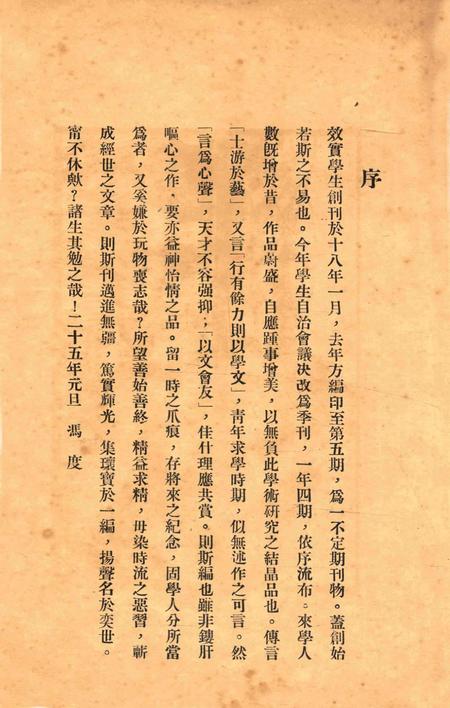 序
效實學生創刊於十八年一月，去年方編印至第五期，爲一不定期刊物。蓋創始
若斯之不易也。今年學生自治會議决改爲季刊，一年四期，依序流布。來學人
數既增於昔，作品蔚盛，自應踵事增美，以無負此學術研究之結晶品也。傳言
「士游於藝」，又言「行有餘力則以學文」，靑年求學時期，似無述作之可言。然
「言爲心聲」，天才不容强抑；「以文會友」，佳什理應共賞。則斯編也雖非鏤肝
嘔心之作，要亦益神怡情之品。留一時之爪痕，存將來之紀念，固學人分所當
爲者，又奚嫌於玩物喪志哉？所望善始善終，精益求精，毋染時流之惡習，蘄
成經世之文章。則斯刊邁進無疆，篤實輝光，集瓌寶於一編，揚聲名於奕世。
甯不休歟？諸生其勉之哉！二十五年元旦　馮度